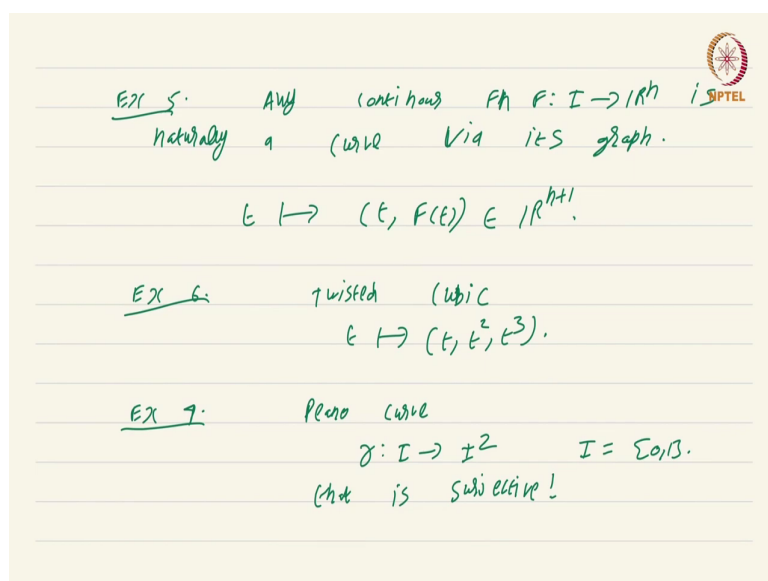 Ex 5. Any continous Fn F: I → ℝⁿ is
naturally a curve via its graph.
t ↦ (t, F(t)) ∈ ℝⁿ⁺¹.
Ex 6. Twisted cubic
t ↦ (t, t², t³).
Ex 7. Peano curve
γ: I → I² I = [0,1].
that is surjective!
NPTEL